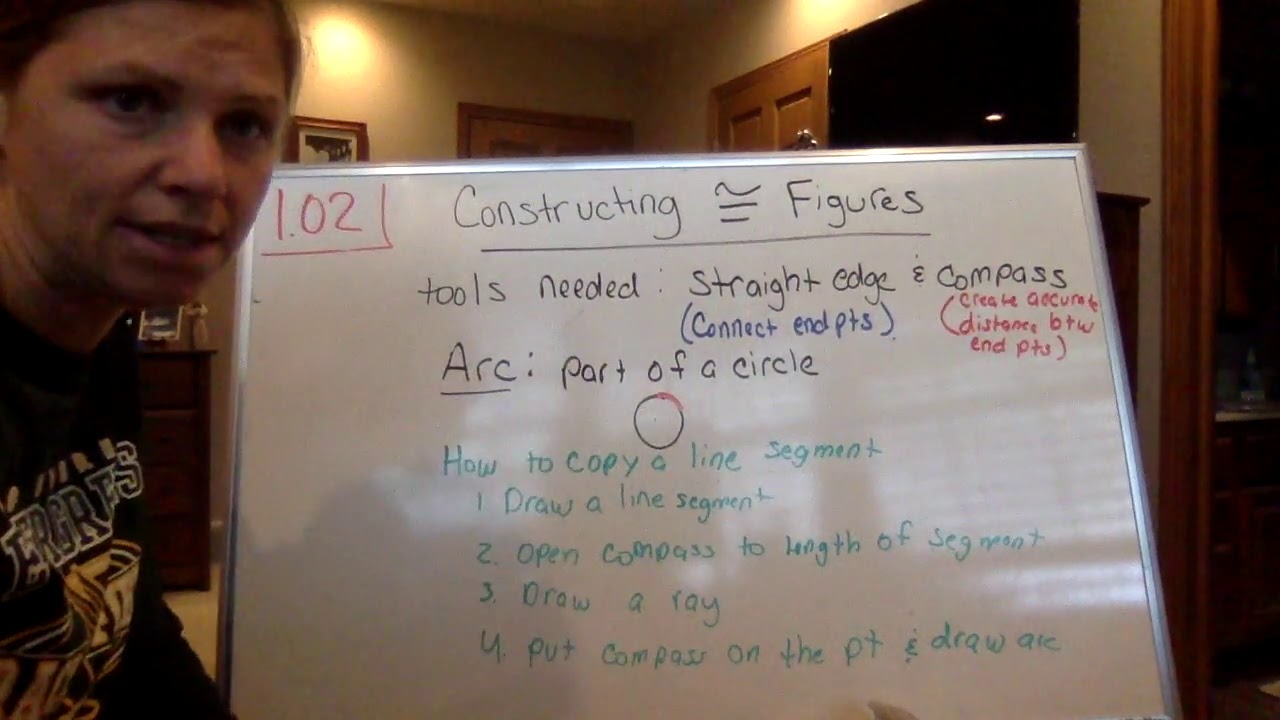 1.02
Constructing ≅ Figures
tools needed: Straight edge & Compass
(Connect end pts).
(create accurate
distance btw
end pts)
Arc: part of a circle
How to copy a line segment
1 Draw a line segment
2. Open compass to length of segment
3. Draw a ray
4. put compass on the pt & draw arc